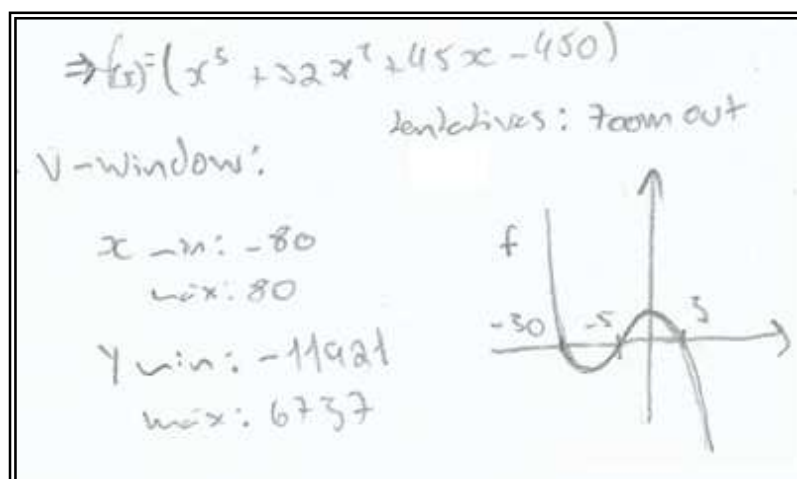 ⇒ f(x)=(x³ + 32x² + 45x - 450)
tentatives: zoom out
V-window:
x min: -80
max: 80
Y min: -11921
max: 6737
f
-30 -5 3